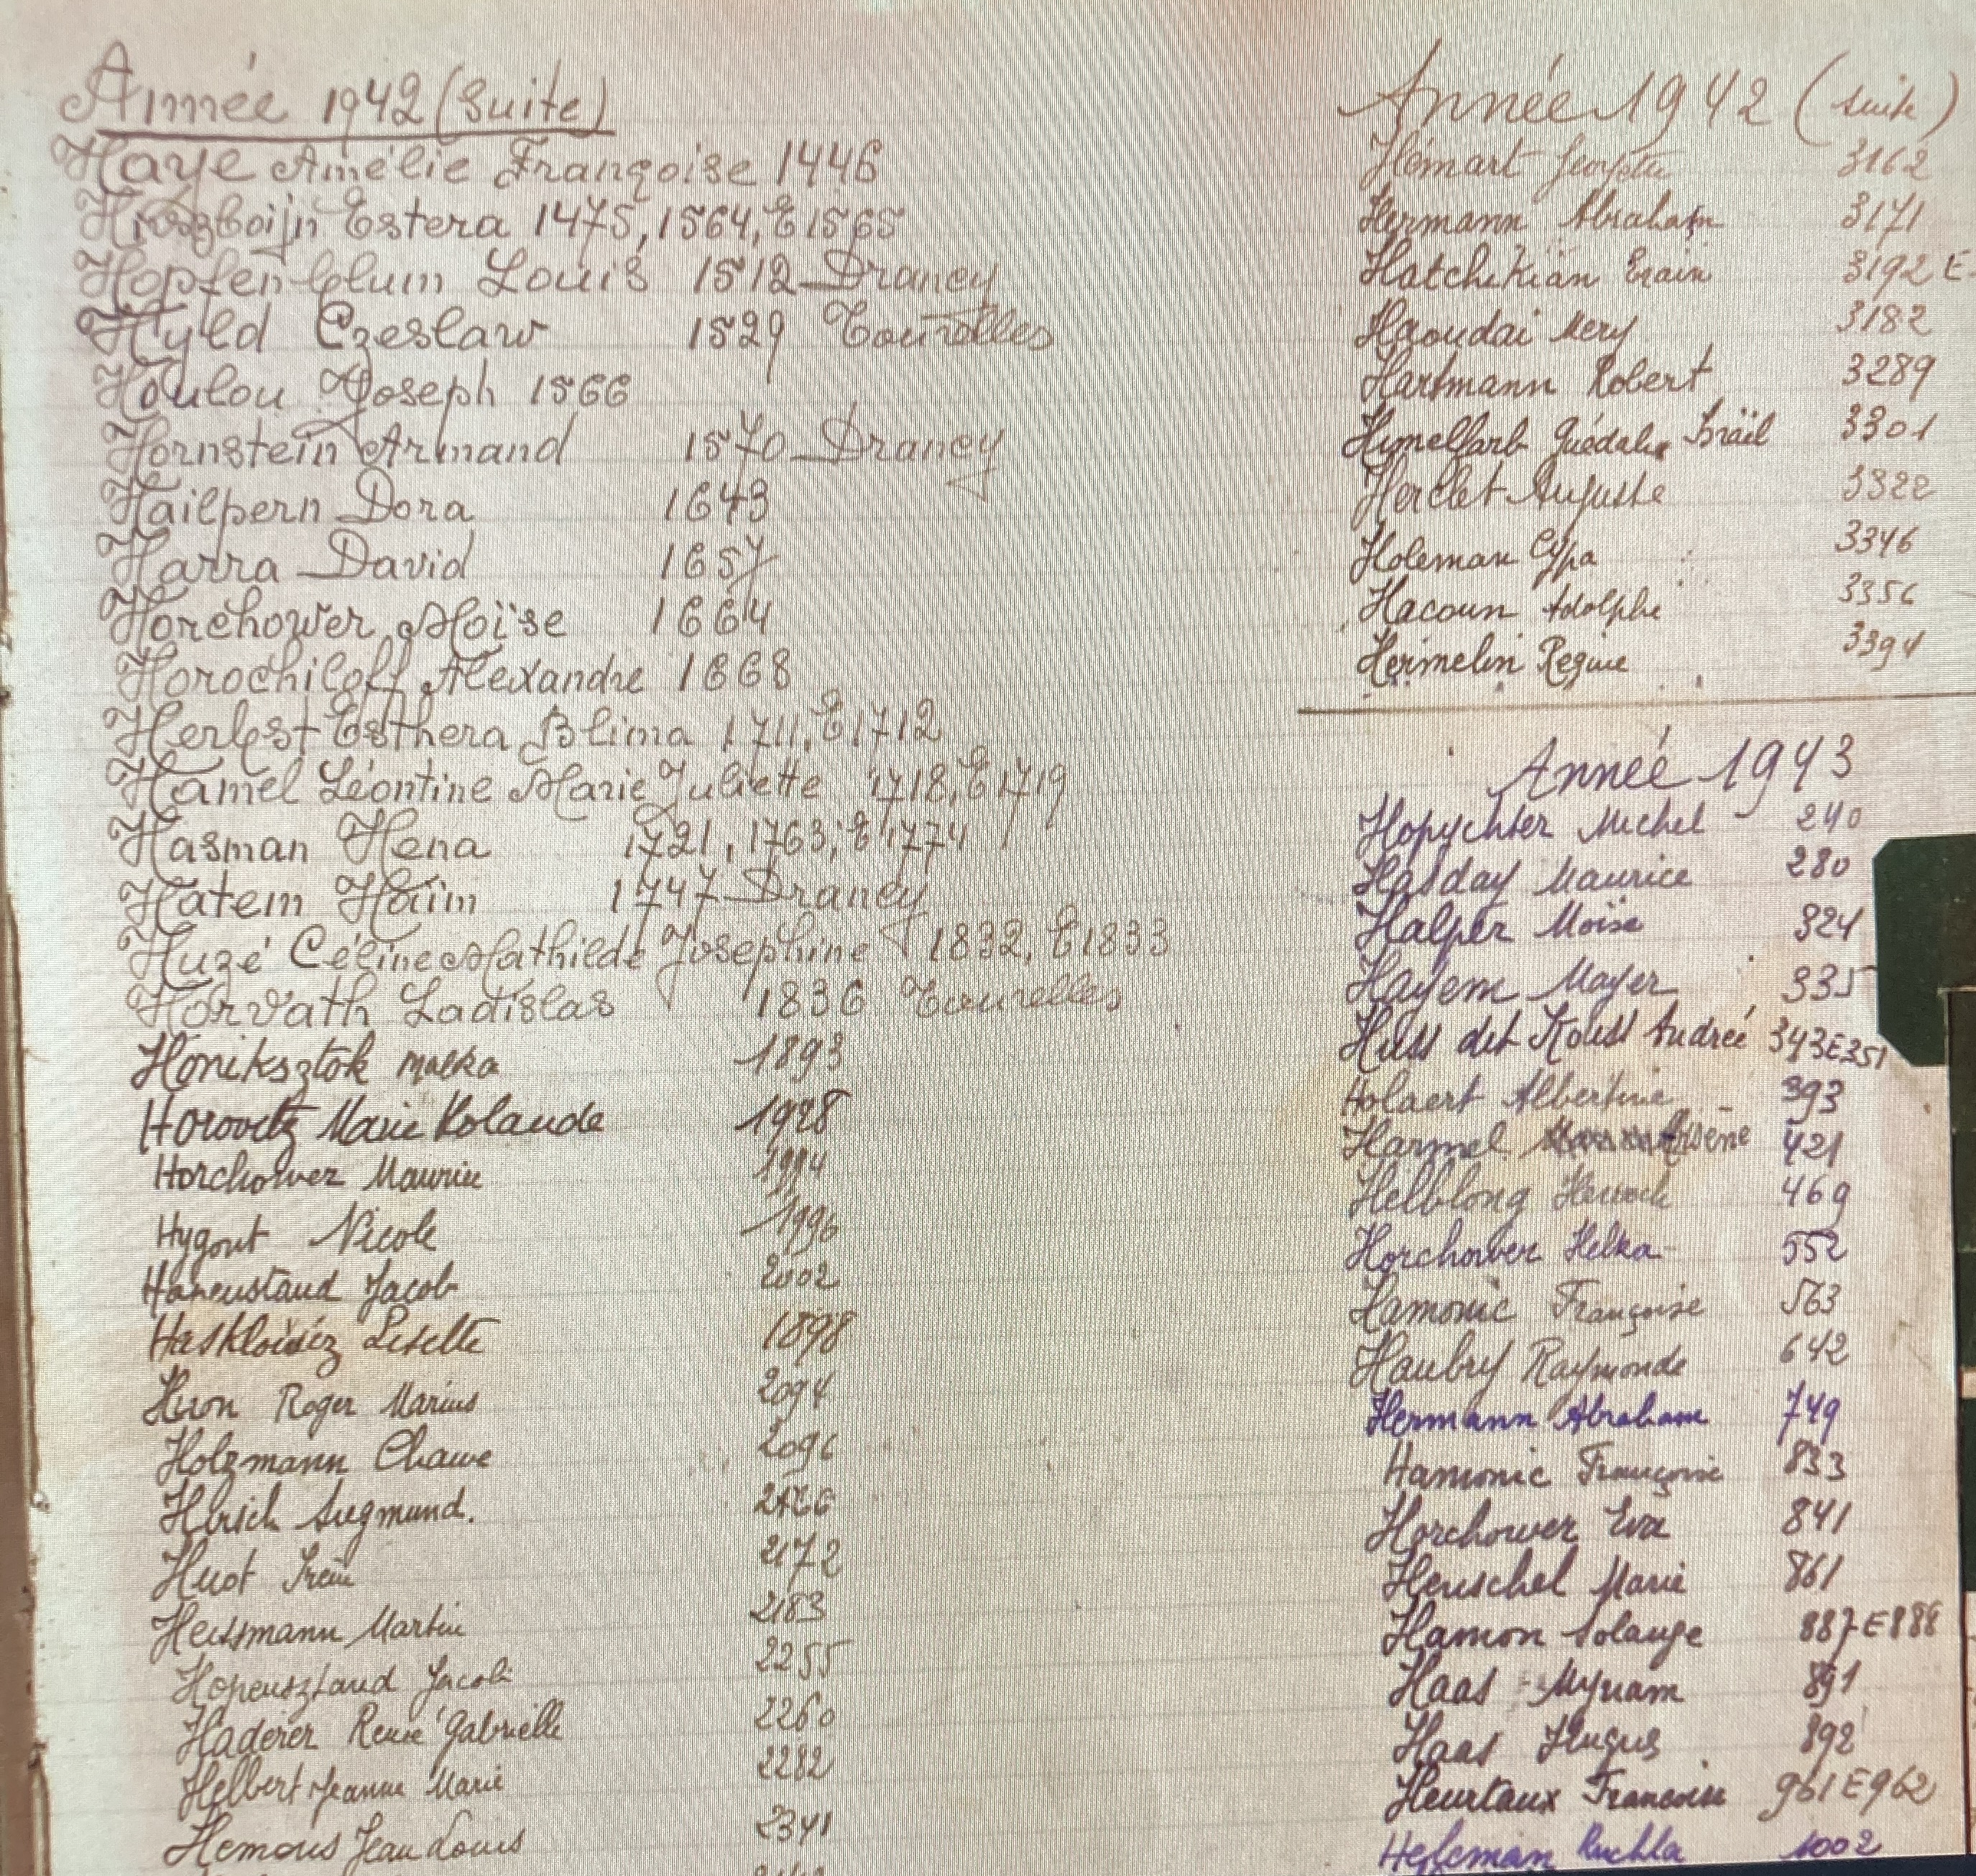 Année 1942 (Suite)
Haye Amélie Françoise 1446
Estera 1475, 1564, E 1565
Hopfenblum Louis 1512 Drancy
Hyld Czeslaw 1529 Tourelles
Houlou Joseph 1566
Hornstein Armand 1570 Drancy
Hailpern Dora 1643
Harra David 1657
Horchower Moïse 1664
Horochiloff Alexandre 1668
Herbst Esthera Blima 1711, E 1712
Hamel Léontine Marie Juliette 1718, E 1719
Hasman Hena 1721, 1763, E 1774
Hatem Haïm 1747 Drancy
Huzé Céline Mathilde Josephine 1832, E 1833
Horvath Ladislas 1836 Tourelles
Honiksztok malka 1893
Horovitz Marie Yolande 1928
Horchower Maurice 1994
Hygout Nicole 1996
Jacob 2002
Lisette 1898
Huon Roger Marius 2094
Holzmann Chawe 2096
Hirsch Siegmund.
Huot 2172
Martin 2183
Hopensztand Jacob 2255
Haderer Renée Gabrielle 2260
Helbert Jeanne Marie 2282
Hemous Jean Louis 2341
Année 1942 (suite)
Hémart 3162
Hermann Abraham 3171
Hatchikian 3192 E
Haoudai Mery 3182
Hartmann Robert 3289
Himelfarb Israël 3301
Herclet Auguste 3322
Holeman Cypa 3346
Hacoun Adolphe 3356
Hermelin Regine 3394
Année 1943
Hopychter Michel 240
Hasday Maurice 280
Halper Moïse 324
Hayem Mayer 335
Huss dit Andrée 343 E 351
Holaert Albertine 393
Harmel Arsène 421
Helblong 469
Horchower Helka 552
Hamonic Françoise 563
Haubry Raymonde 642
Hermann Abraham 749
Hamonic Françoise 833
Horchower Eva 841
Henschel Marie 861
Hamon Solange 887 E 888
Haas Myriam 891
Haas Hugus 892
Heurtaux Francoise 961 E 962
Ruchla 1002